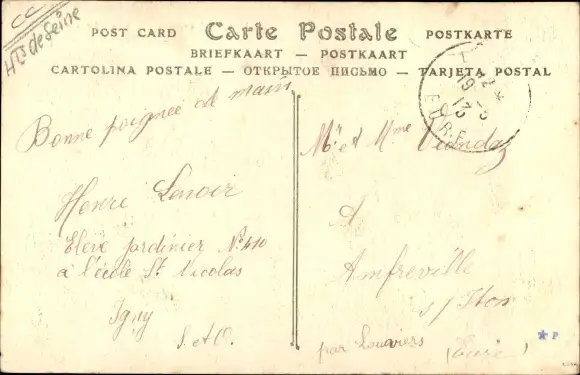 CC
Hts de Seine
POST CARD Carte Postale POSTKARTE
BRIEFKAART — POSTKAART
CARTOLINA POSTALE — ОТКРЫТОЕ ПИСЬМО — TARJETA POSTAL
Bonne poignée de main
Henri Lenoir
Elève jardinier No 410
à l'école St Nicolas
Igny
S. et O.
Mr et Mme
A
Amfreville
s/ Iton
par Louviers
(Eure)
19 -5
13
EURE
* P